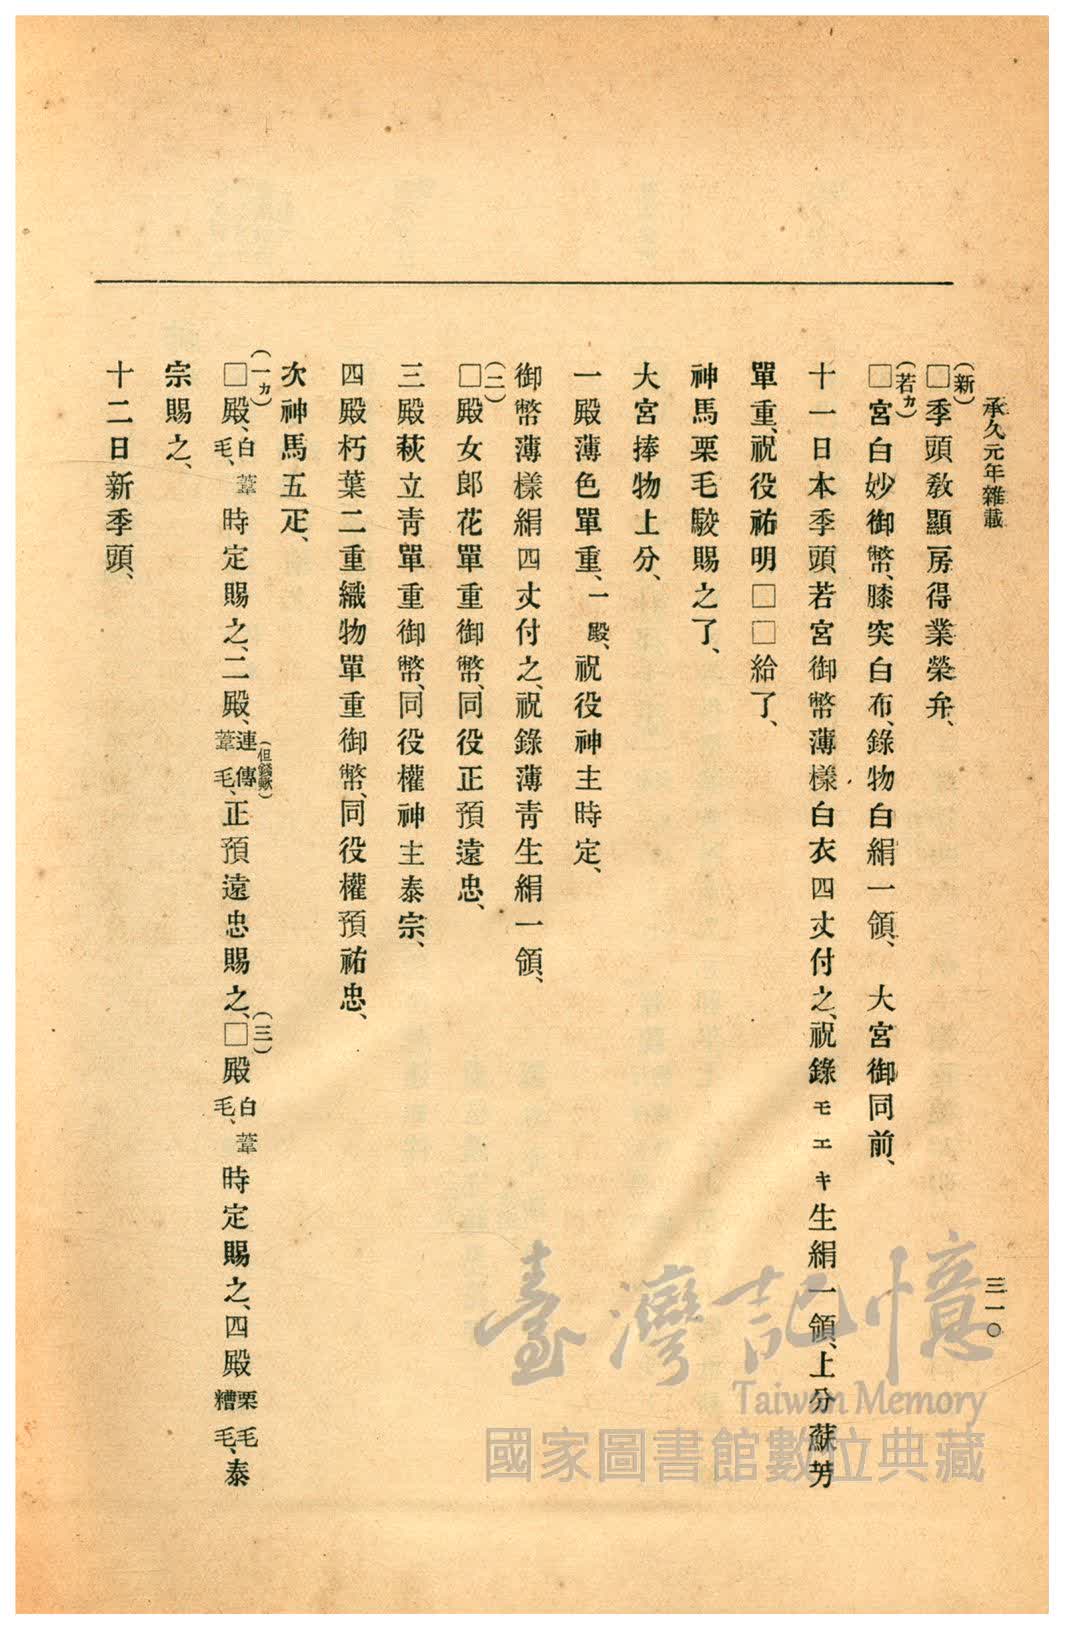 承久元年雜載
三一〇
(新)
□季頭敎顯房得業榮弁、
(若カ)
□宮白妙御幣、膝突白布、錄物白絹一領、大宮御同前、
十一日本季頭若宮御幣薄樣白衣四丈付之、祝錄モエキ生絹一領、上分蘇芳
單重、祝役祐明□□給了、
神馬栗毛駮賜之了、
大宮捧物上分、
一殿薄色單重、一殿、祝役神主時定、
御幣薄樣絹四丈付之、祝錄薄靑生絹一領、
(二)
□殿女郞花單重御幣、同役正預遠忠、
三殿萩立靑單重御幣、同役權神主泰宗、
四殿朽葉二重織物單重御幣、同役權預祐忠、
次神馬五疋、
(一カ)
□殿、白葦毛、時定賜之、二殿、連傳葦毛、(但錢歟)正預遠忠賜之、(三)□殿白葦毛、時定賜之、四殿栗毛糟毛、泰
宗賜之、
十二日新季頭、
臺灣記憶
Taiwan Memory
國家圖書館數位典藏